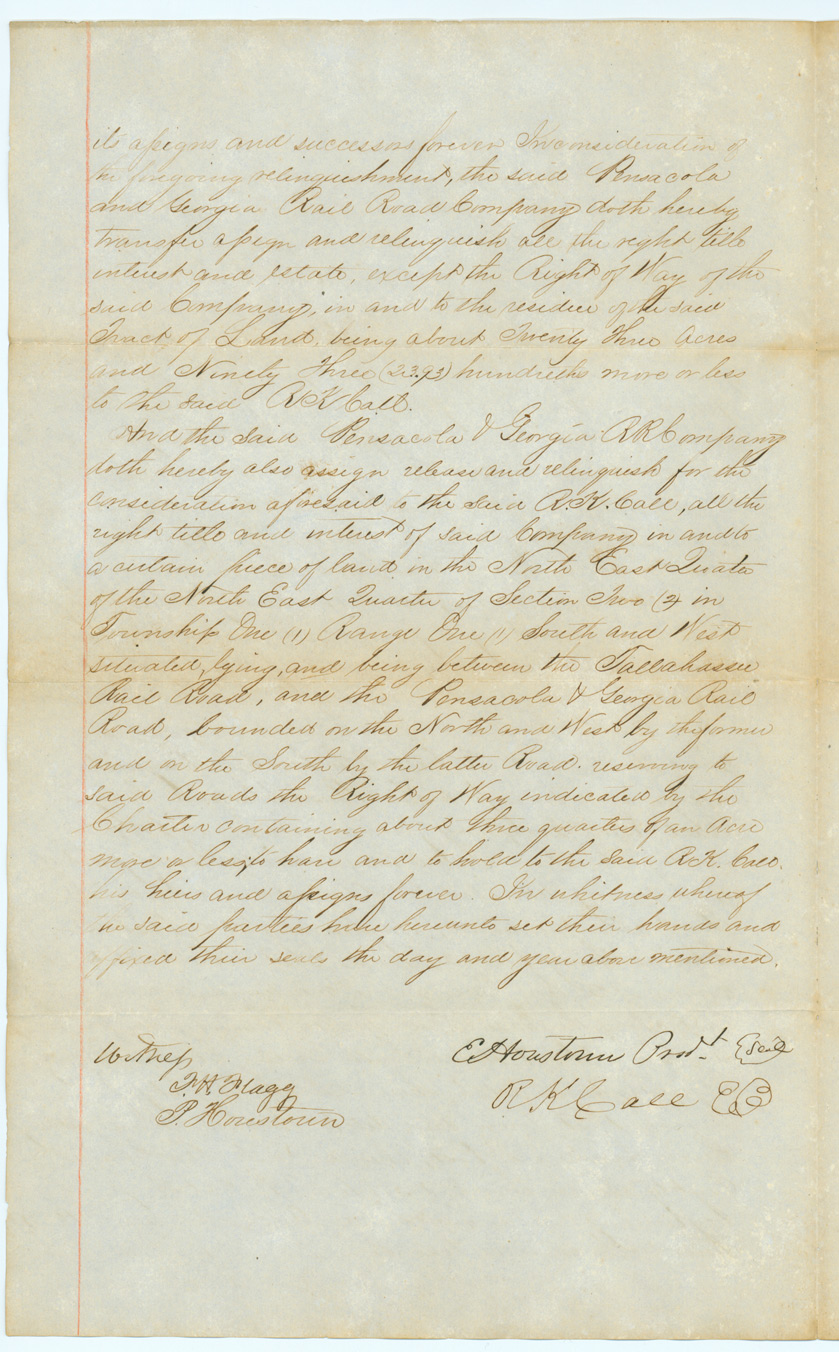 its assigns and successors forever In consideration of
the foregoing relinquishment, the said Pensacola
and Georgia Rail Road Company doth hereby
transfer assign and relinquish all the right title
interest and estate, except the Right of Way of the
said Company, in and to the residue of the said
Tract of Land, being about Twenty Three Acres
and Ninety Three (23.93) hundreths more or less
to the said R K Call.
And the said Pensacola & Georgia R R Company
doth hereby also assign release and relinquish for the
consideration aforesaid to the said R. K. Call, all the
right title and interest of said Company in and to
a certain piece of land in the North East Quater
of the North East Quarter of Section Two (2) in
Township One (1) Range One (1) South and West
situated, lying, and being between the Tallahassee
Rail Road, and the Pensacola & Georgia Rail
Road, bounded on the North and West by the former
and on the South by the latter Road. reserving to
said Roads the Right of Way indicated by the
Charter containing about three quarters of an Acre
more or less; to have and to hold to the said R. K. Call.
his heirs and assigns forever. In whitness whereof
the said parties have hereunto set their hands and
affixed their seals the day and year above mentioned.
Witness
E Houstoun Prsdt. Seal
F. H. Flagg
R K Call
P. Houstoun